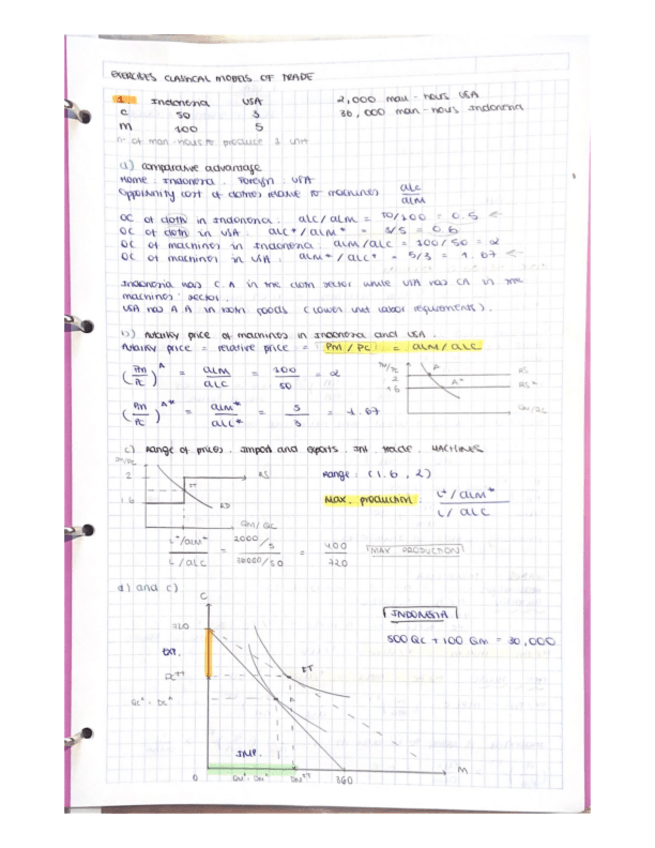 EXERCISES CLASSICAL MODELS OF TRADE
1. Indonesia USA 2,000 man-hours USA
C 50 3 36,000 man-hours Indonesia
M 100 5
nº of man hours to produce 1 unit
a) comparative advantage
Home: Indonesia. Foreign: USA
Opportunity cost of clothes relative to machines aLC/aLM
OC of cloth in Indonesia: aLC/aLM = 50/100 = 0.5 <-
OC of cloth in USA: aLC*/aLM* = 3/5 = 0.6
OC of machines in Indonesia: aLM/aLC = 100/50 = 2
OC of machines in USA: aLM*/aLC* = 5/3 = 1.67 <-
Indonesia has C.A in the cloth sector while USA has CA in the
machines' sector.
USA has A.A in both goods (lower unit labor requirements).
b) Autarky price of machines in Indonesia and USA.
Autarky price = relative price = PM/PC = aLM/aLC
(PM/PC)^A = aLM/aLC = 100/50 = 2
PM/PC 2 1.6 A A* RS RS* QM/QC
(PM/PC)^A* = aLM*/aLC* = 5/3 = 1.67
c) Range of prices. Import and exports. Int. trade. MACHINES
PM/PC 2 1.6 FT RS RD QM/QC
Range: (1.6, 2)
Max. production: L*/aLM* / L/aLC
L*/aLM* / L/aLC = 2000/5 / 36000/50 = 400/720 MAX PRODUCTION
d) and c)
C
INDONESIA
720
EXT.
FT
DC^FT
QC^A = DC^A
A
IMP.
0 QM^A = DM^A DM^FT 360 M